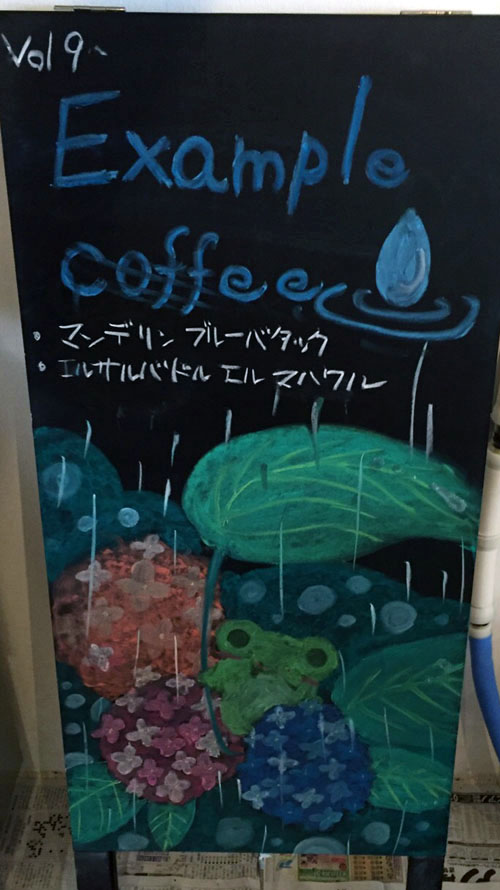 Vol 9~
Example
coffee
・マンデリン ブルーバタック
・エルサルバドル エル マハワル